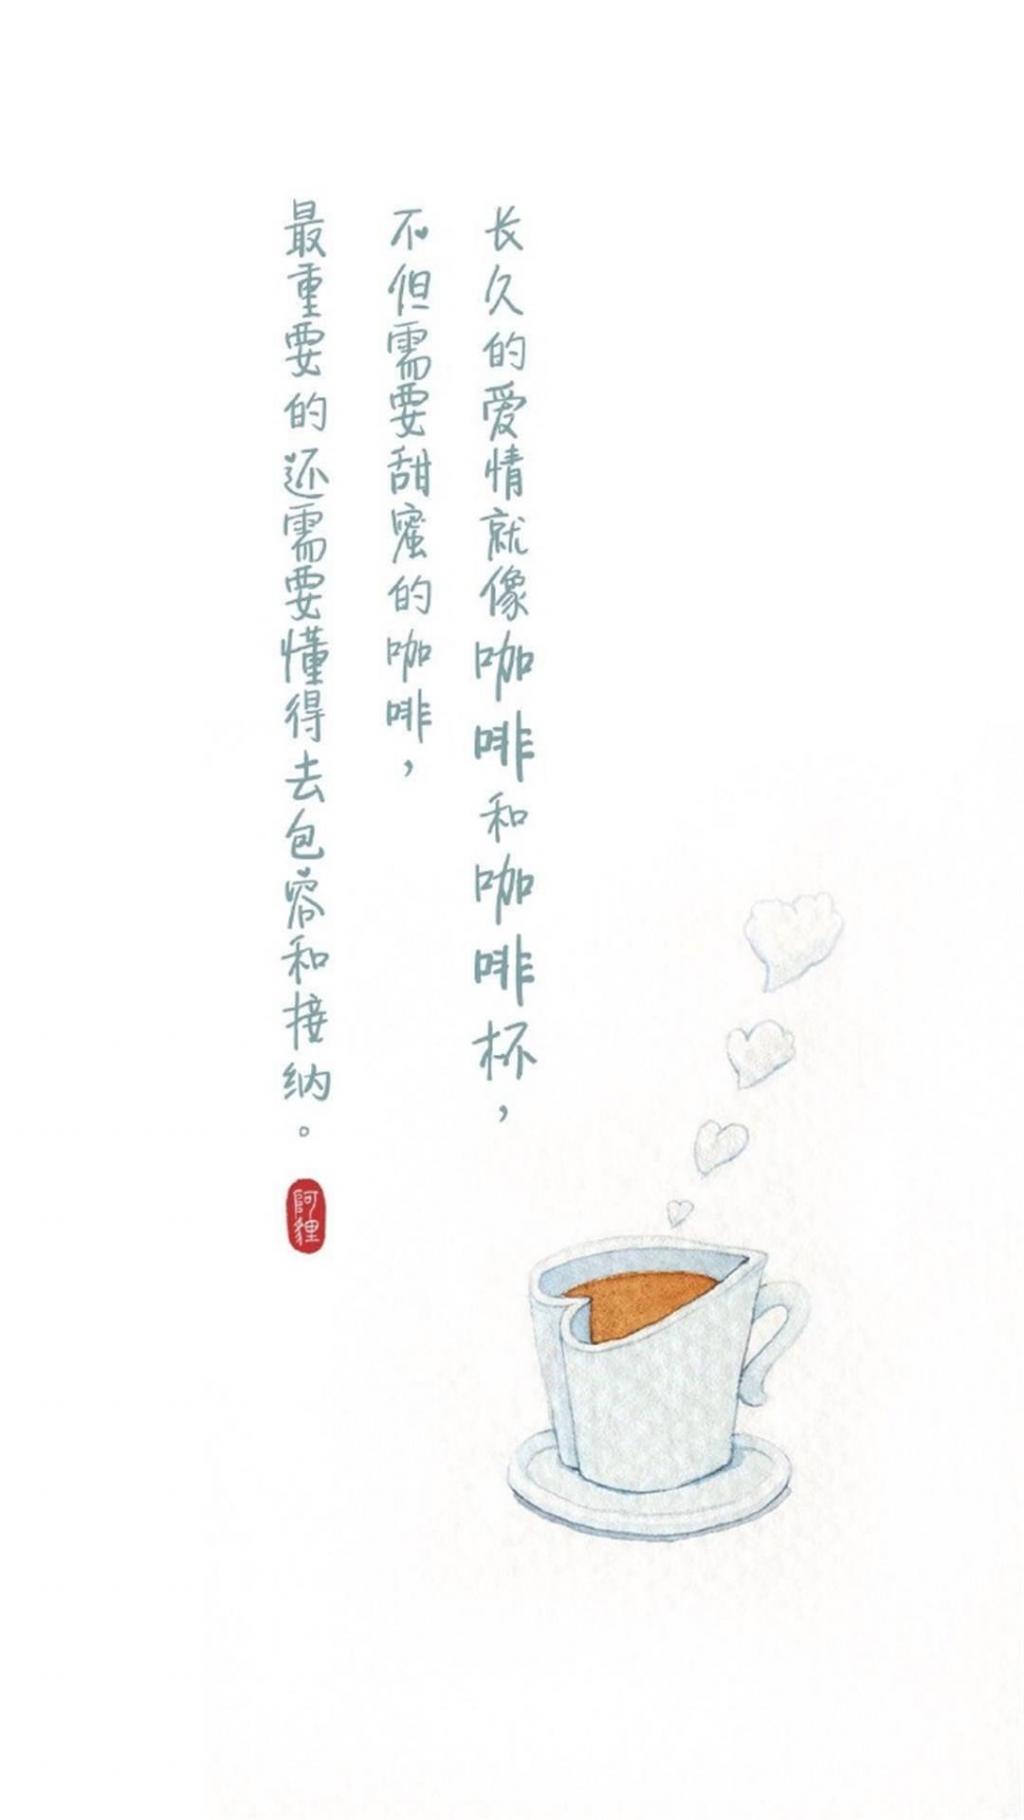 长久的爱情就像咖啡和咖啡杯，
不但需要甜蜜的咖啡，
最重要的还需要懂得去包容和接纳。
阿狸